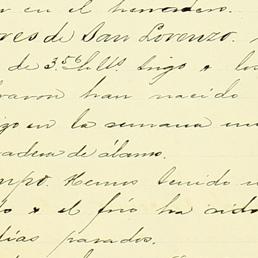 en el herradero.
res de San Lorenzo.
de 356 blls. trigo x los
varon han nacido
igo en la semana un
adera de álamo.
mpo. Hemos tenido u
o x el frío ha sido
días pasados.